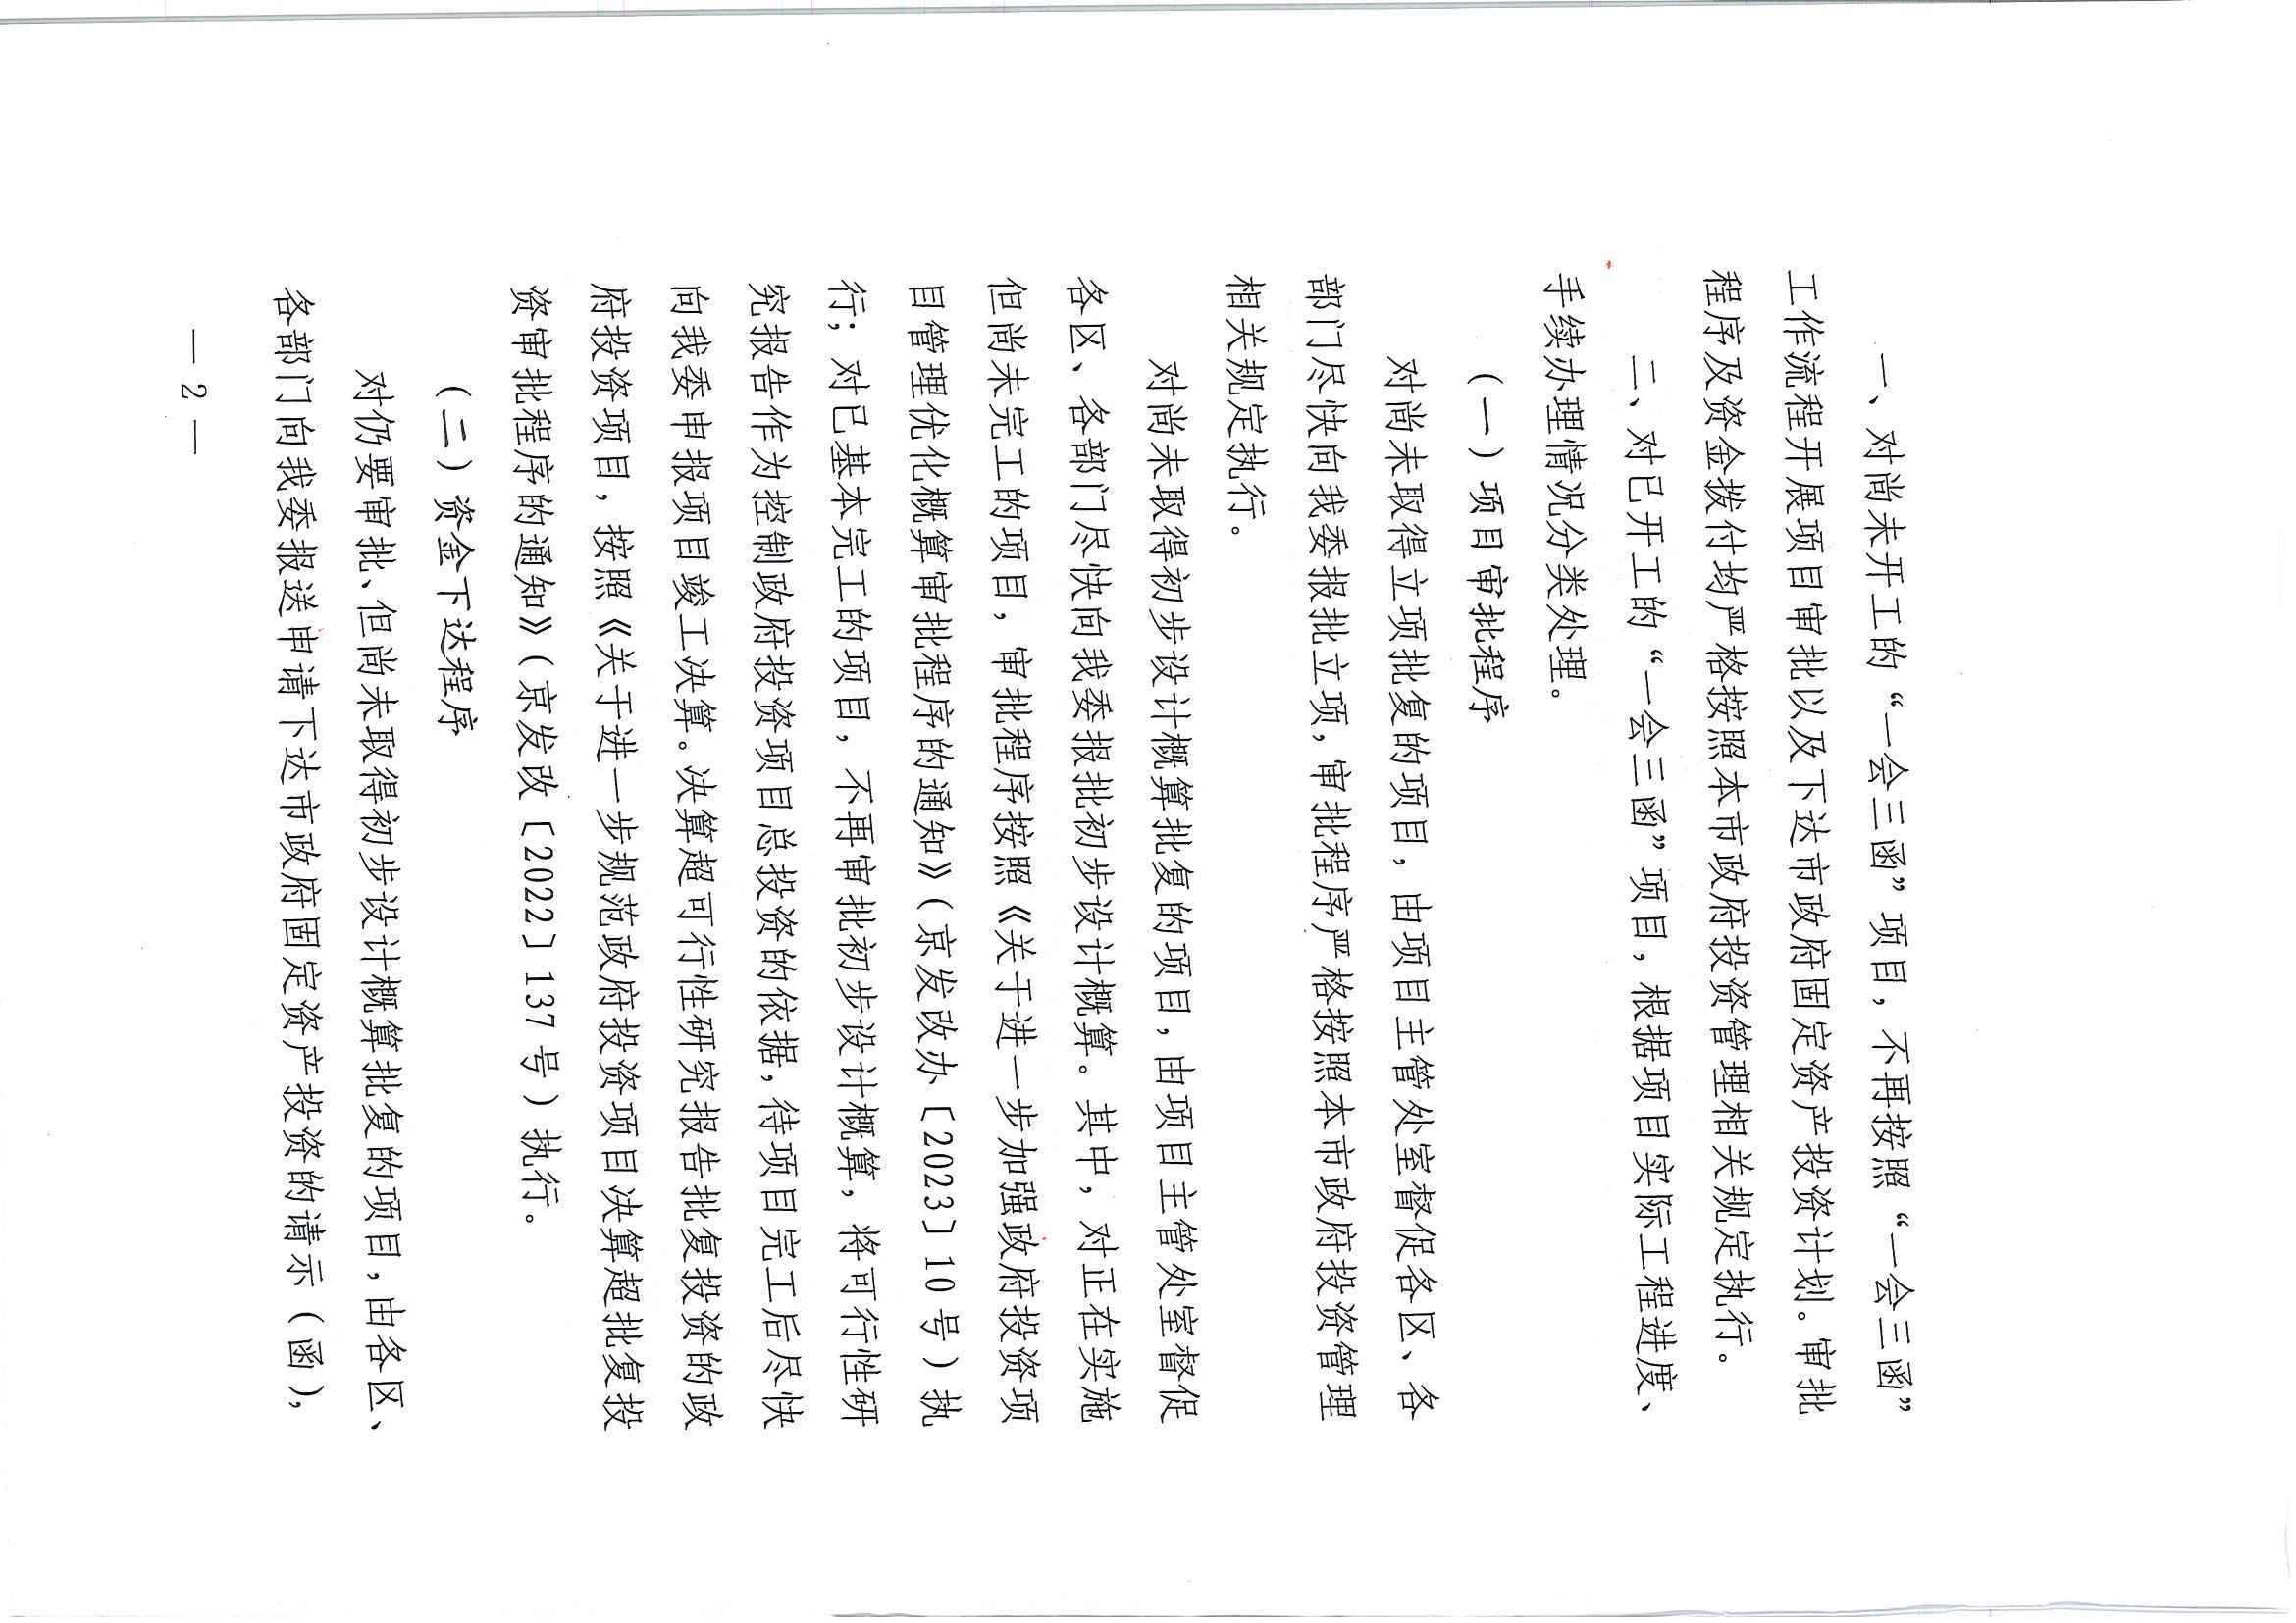 一、对尚未开工的“一会三函”项目，不再按照“一会三函”
工作流程开展项目审批以及下达市政府固定资产投资计划。审批
程序及资金拨付均严格按照本市政府投资管理相关规定执行。
二、对已开工的“一会三函”项目，根据项目实际工程进度、
手续办理情况分类处理。
（一）项目审批程序
对尚未取得立项批复的项目，由项目主管处室督促各区、各
部门尽快向我委报批立项，审批程序严格按照本市政府投资管理
相关规定执行。
对尚未取得初步设计概算批复的项目，由项目主管处室督促
各区、各部门尽快向我委报批初步设计概算。其中，对正在实施
但尚未完工的项目，审批程序按照《关于进一步加强政府投资项
目管理优化概算审批程序的通知》（京发改办〔2023〕10号）执
行；对已基本完工的项目，不再审批初步设计概算，将可行性研
究报告作为控制政府投资项目总投资的依据，待项目完工后尽快
向我委申报项目竣工决算。决算超可行性研究报告批复投资的政
府投资项目，按照《关于进一步规范政府投资项目决算超批复投
资审批程序的通知》（京发改〔2022〕137号）执行。
（二）资金下达程序
对仍要审批、但尚未取得初步设计概算批复的项目，由各区、
各部门向我委报送申请下达市政府固定资产投资的请示（函），
— 2 —